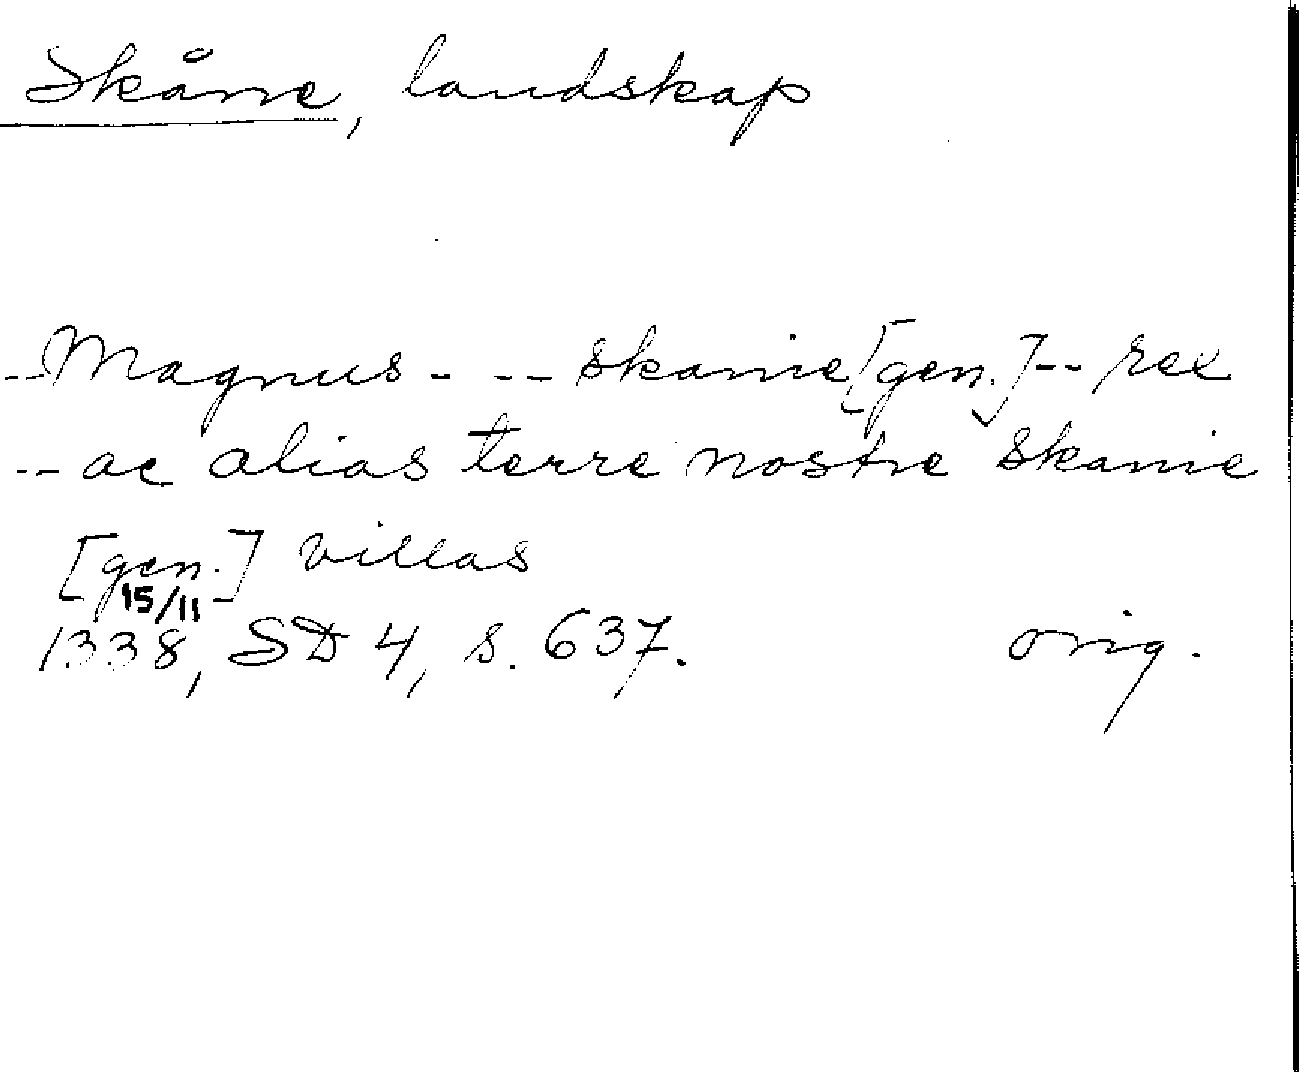 Skåne, landskap
--Magnus - -- skanie [gen.] -- rex
-- ac alias terre nostre skanie
[gen.] villas
15/11
1338, SD 4, s. 637. orig.